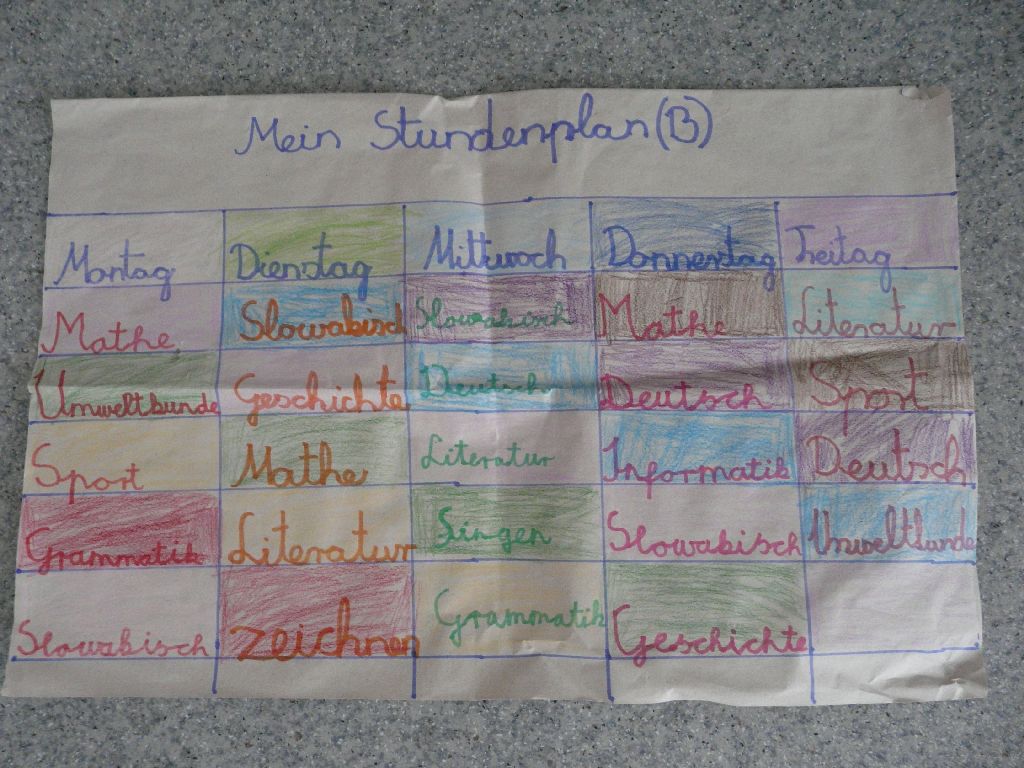 Mein Stundenplan (B)
Montag Dienstag Mittwoch Donnerstag Freitag
Mathe Slowakisch Slowakisch Mathe Literatur
Umweltkunde Geschichte Deutsch Deutsch Sport
Sport Mathe Literatur Informatik Deutsch
Grammatik Literatur Singen Slowakisch Umweltkunde
Slowakisch Zeichnen Grammatik Geschichte